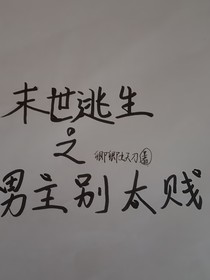 末世逃生
之
男主别太贱